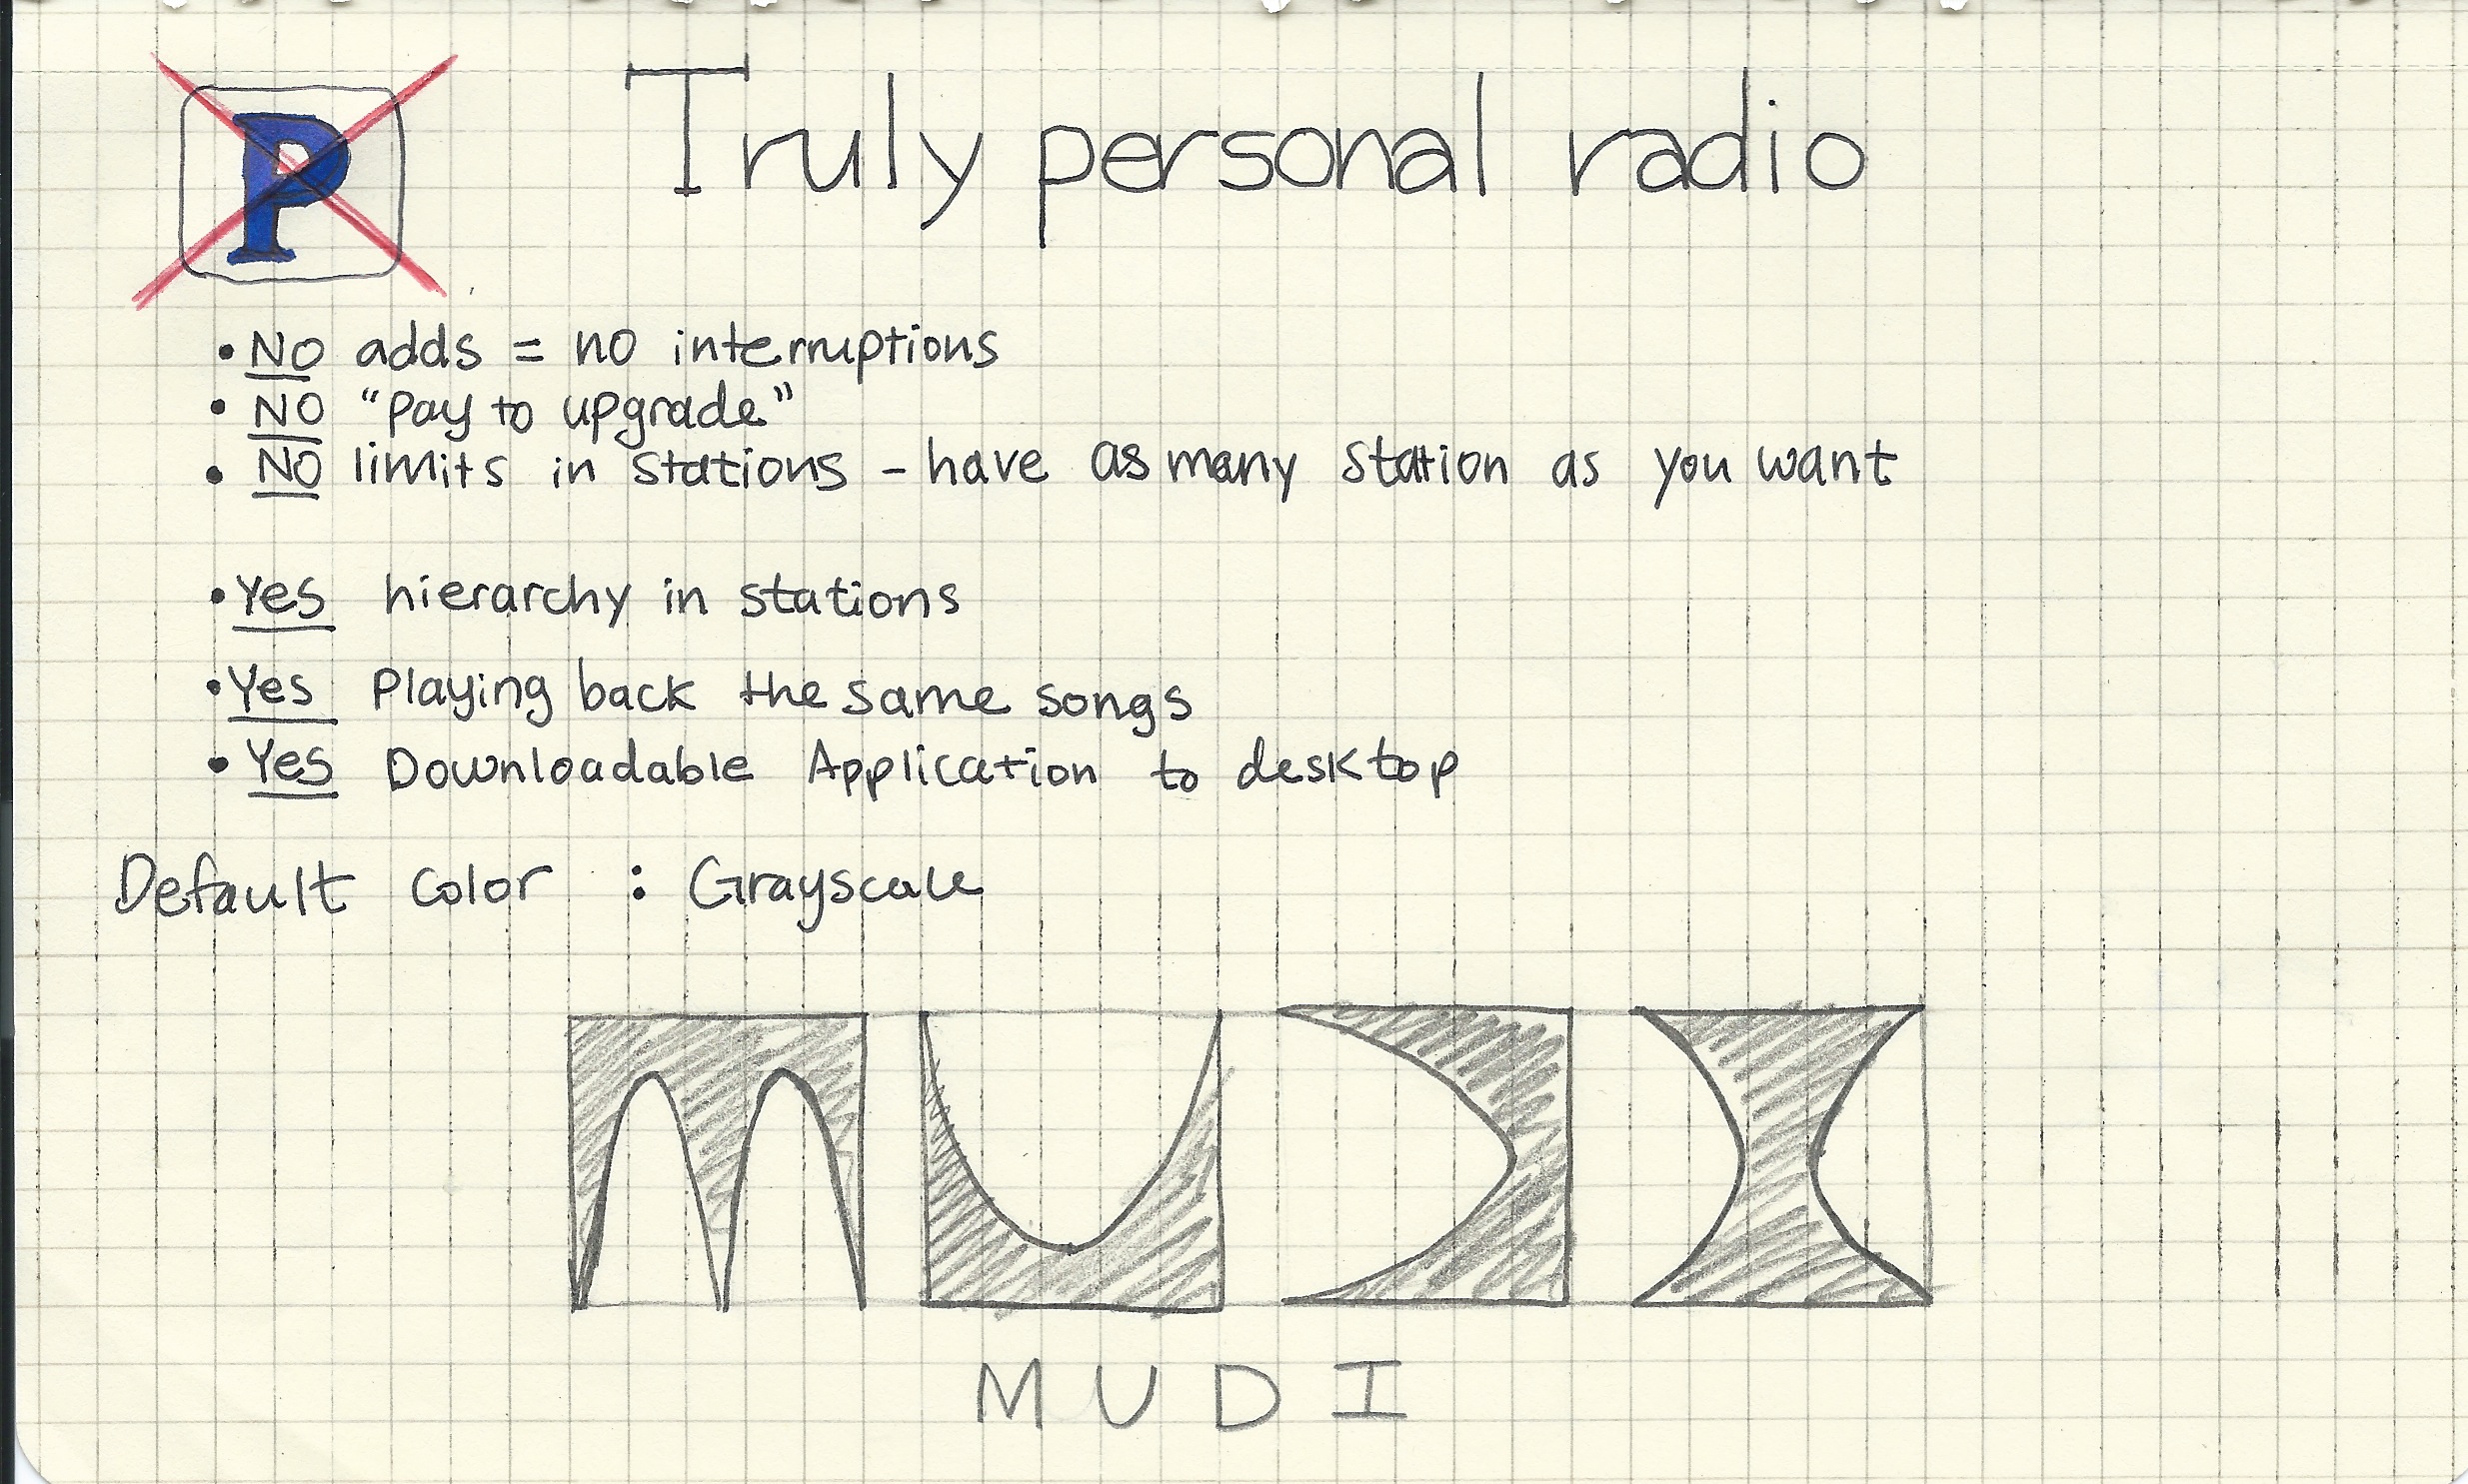 P
Truly personal radio
• NO adds = no interruptions
• NO "pay to upgrade"
• NO limits in stations - have as many station as you want
• Yes hierarchy in stations
• Yes Playing back the same songs
• Yes Downloadable Application to desktop
Default color : Grayscale
MUDI
MUDI